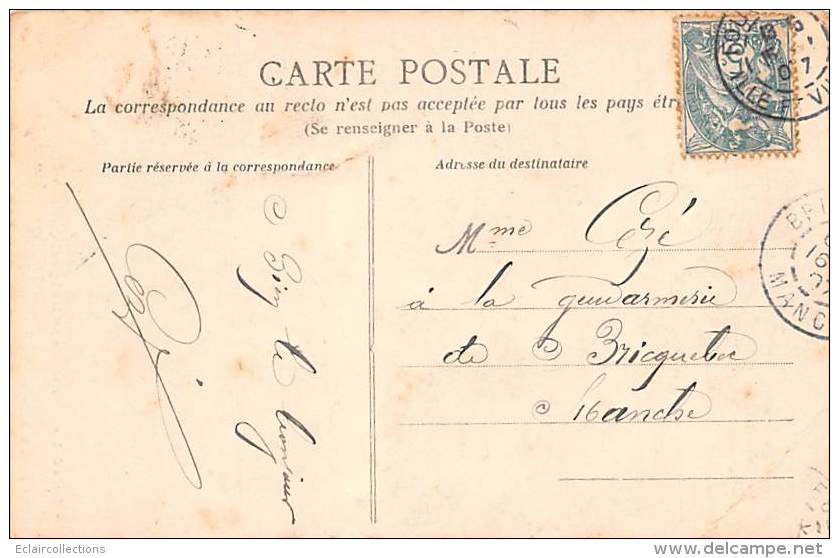 CARTE POSTALE
La correspondance au recto n'est pas acceptée par tous les pays étr
(Se renseigner à la Poste)
Partie réservée à la correspondance
Adresse du destinataire
Mme Cozé
à la gendarmerie
de Bricquebec
Manche
le bonjour
BRI
16
MANC
Eclaircollections
delcampe.net